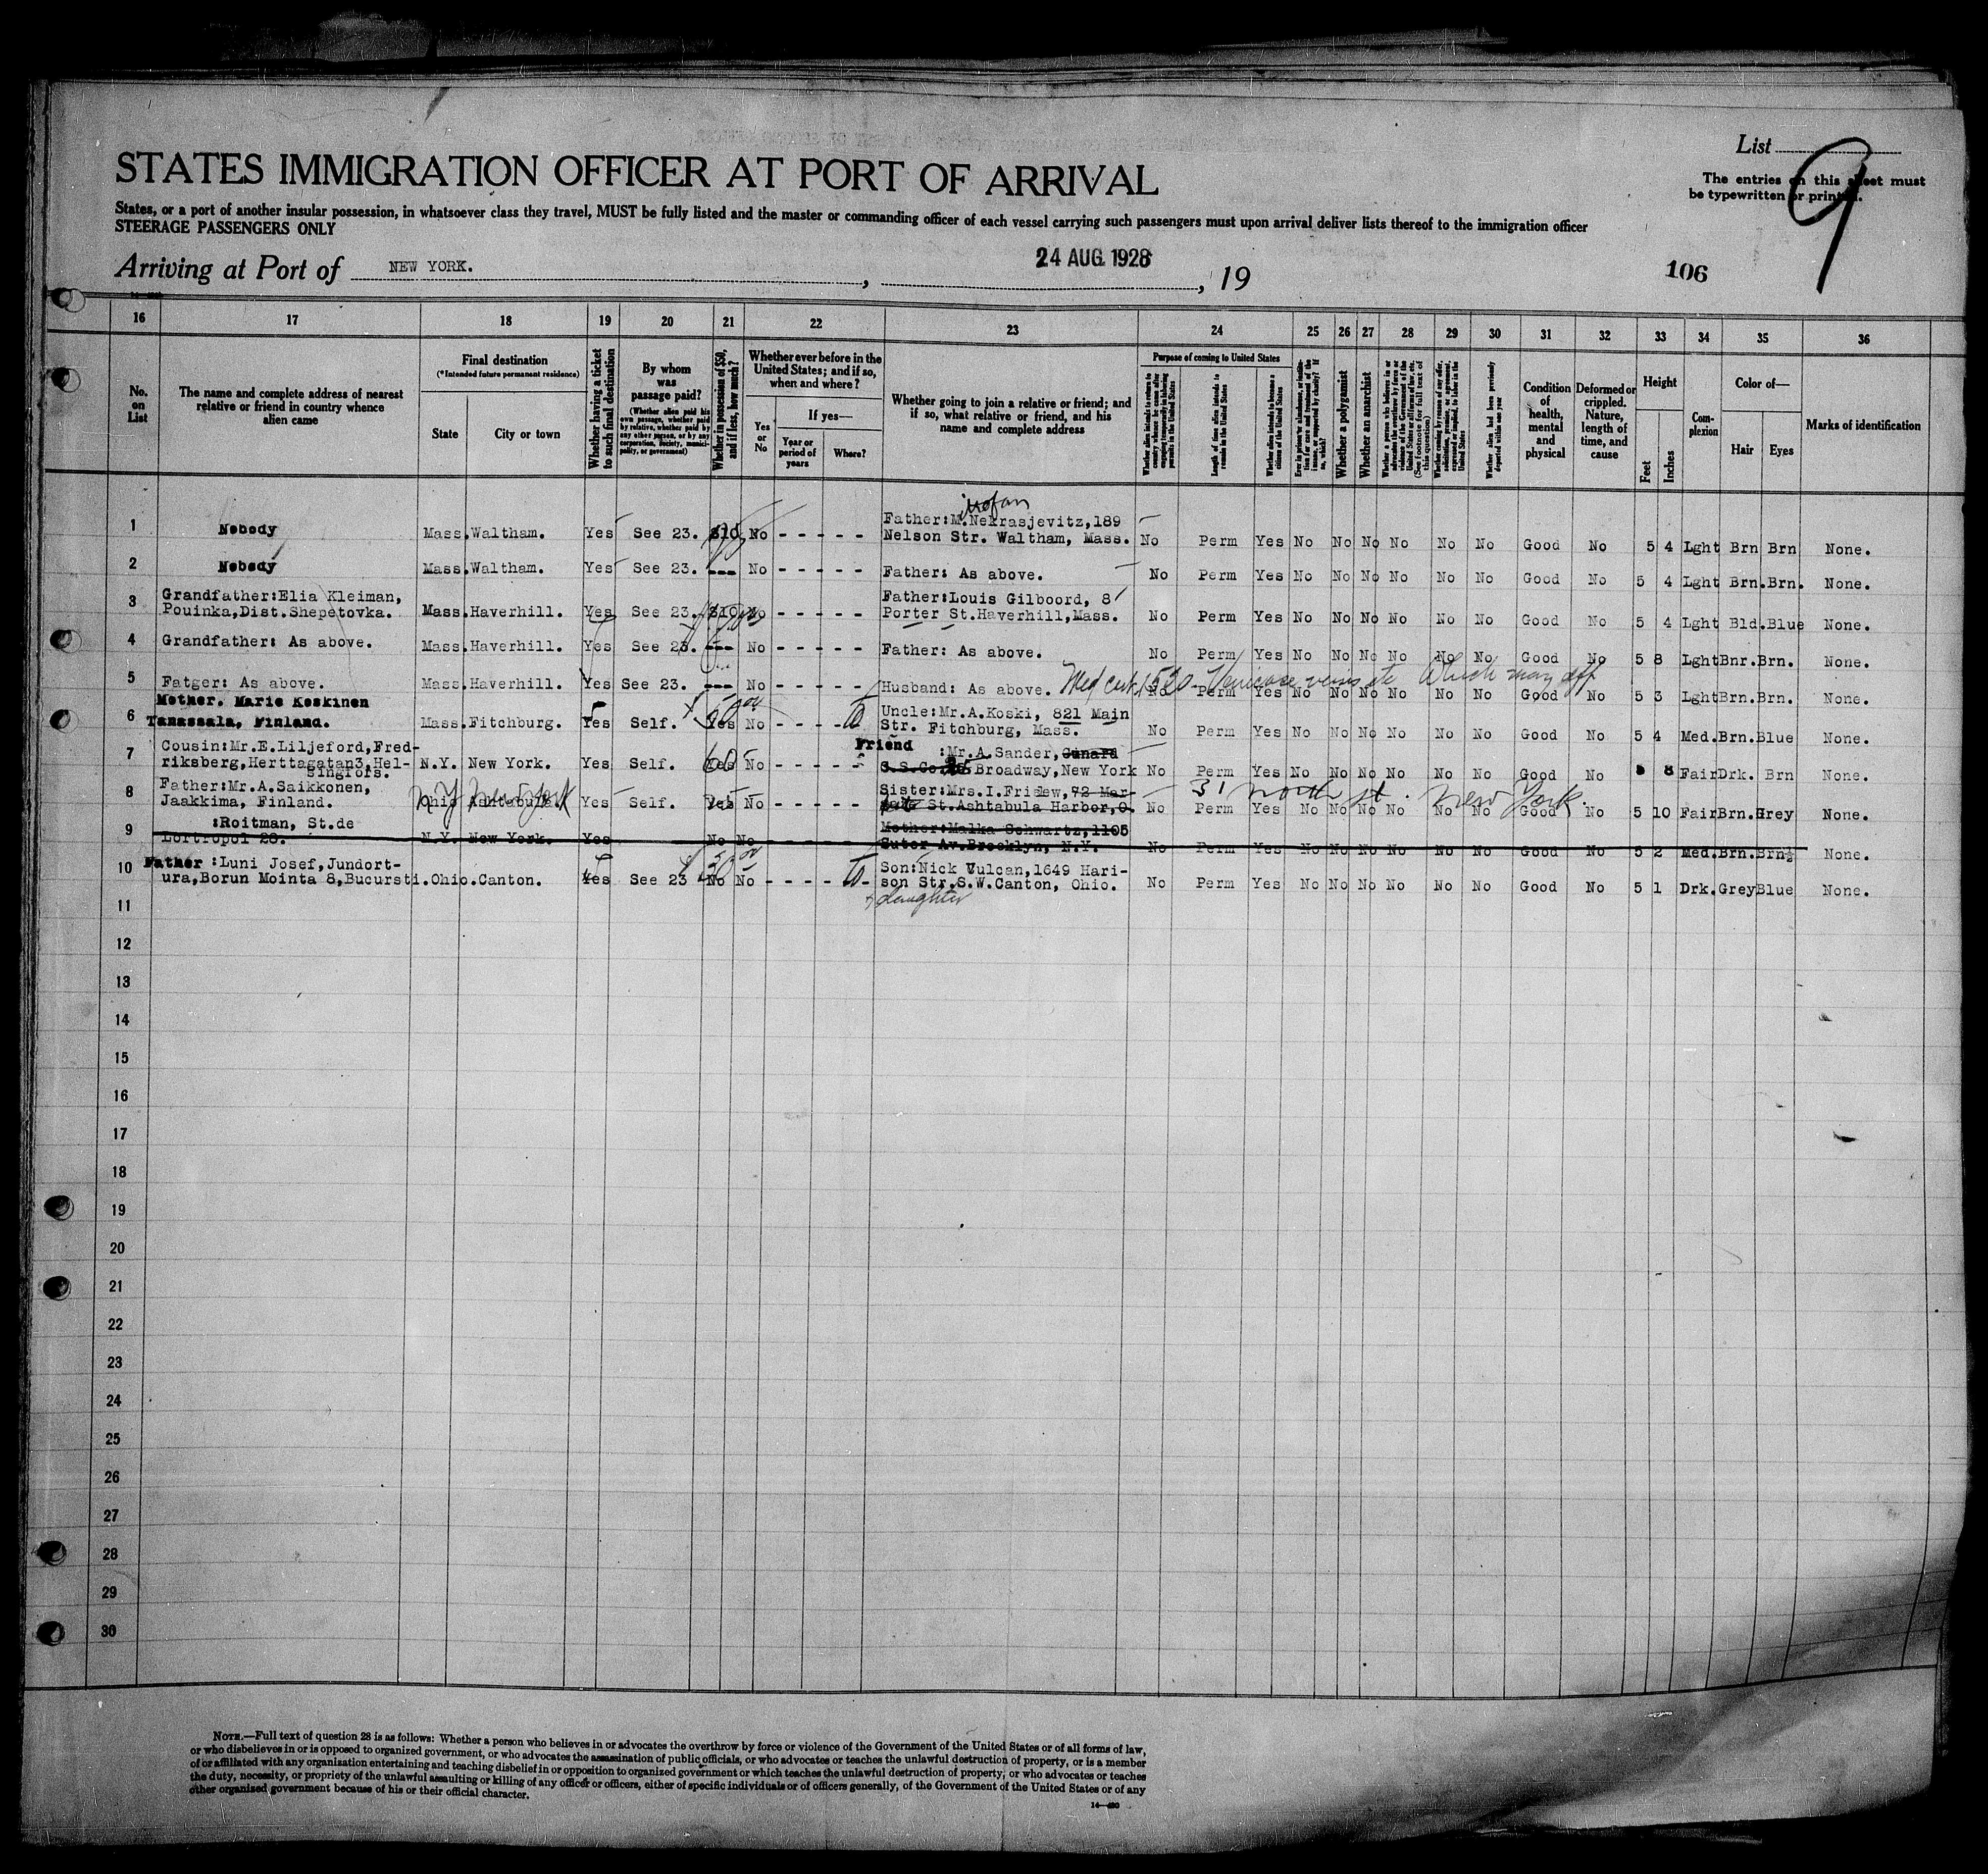 List 9
STATES IMMIGRATION OFFICER AT PORT OF ARRIVAL
The entries on this sheet must
be typewritten or printed.
States, or a port of another insular possession, in whatsoever class they travel, MUST be fully listed and the master or commanding officer of each vessel carrying such passengers must upon arrival deliver lists thereof to the immigration officer
STEERAGE PASSENGERS ONLY
Arriving at Port of NEW YORK. , 24 AUG. 1928 , 19
106
16 17 18 19 20 21 22 23 24 25 26 27 28 29 30 31 32 33 34 35 36
No. on List
The name and complete address of nearest relative or friend in country whence alien came
Final destination
(*Intended future permanent residence)
State
City or town
Whether having a ticket to such final destination
By whom was passage paid?
(Whether alien paid his own passage, whether paid by relative, whether paid by any other person, or by any corporation, society, municipality, or government)
Whether in possession of $50, and if less, how much?
Whether ever before in the United States; and if so, when and where?
Yes or No
If yes—
Year or period of years
Where?
Whether going to join a relative or friend; and if so, what relative or friend, and his name and complete address
Purpose of coming to United States
Length of time alien intends to remain in the United States
Whether alien intends to become a citizen of the United States
Whether a polygamist
Whether an anarchist
(See footnote for full text of this question)
Whether alien had been previously deported within one year
Condition of health, mental and physical
Deformed or crippled. Nature, length of time, and cause
Height
Feet
Inches
Complexion
Color of—
Hair
Eyes
Marks of identification
1 Nobody Mass. Waltham. Yes See 23. $10 No - - - - - Father:M.Nekrasjevitz,189
Nelson Str. Waltham, Mass. No Perm Yes No No No No No No Good No 5 4 Lght Brn Brn None.
2 Nobody Mass. Waltham. Yes See 23. --- No - - - - - Father: As above. No Perm Yes No No No No No No Good No 5 4 Lght Brn. Brn. None.
3 Grandfather:Elia Kleiman,
Pouinka,Dist.Shepetovka. Mass. Haverhill. Yes See 23. $10 No - - - - - Father:Louis Gilboord, 8
Porter St.Haverhill,Mass. No Perm Yes No No No No No No Good No 5 4 Lght Bld. Blue None.
4 Grandfather: As above. Mass. Haverhill. Yes See 23. --- No - - - - - Father: As above. No Perm Yes No No No No No No Good No 5 8 Lght Bnr. Brn. None.
5 Fatger: As above. Mass. Haverhill. Yes See 23. --- No - - - - - Husband: As above. No Perm Yes No No No No No No Good No 5 3 Lght Brn. Brn. None.
Med cert 1530 Varicose veins etc Which may aff
6 Mother. Marie Koskinen
Tanassala, Finland. Mass. Fitchburg. Yes Self. Yes No - - - - - Uncle:Mr.A.Koski, 821 Main
Str. Fitchburg, Mass. No Perm Yes No No No No No No Good No 5 4 Med. Brn. Blue None.
7 Cousin:Mr.E.Liljeford,Fred-
riksberg,Herttagatan3,Hel-
singfors. N.Y. New York. Yes Self. Yes 60 No - - - - - Friend :Mr.A.Sander, Cunard
S.S.Co. 25 Broadway,New York No Perm Yes No No No No No No Good No 5 8 Fair Drk. Brn None.
8 Father:Mr.A.Saikkonen,
Jaakkima, Finland. Ohio Ashtabula N Y New York Yes Self. Yes No - - - - - Sister:Mrs.I.Frislew,72 Mar-
St.Ashtabula Harbor,O. 31 North st. New York No Perm Yes No No No No No No Good No 5 10 Fair Brn. Grey None.
9 :Roitman, St.de
Lortropol 28. N.Y. New York. Yes No No Mother:Malka Schwartz,1105
Sutor Av.Brooklyn, N.Y. No Perm Yes No No No No No No Good No 5 2 Med. Brn. Brn None.
10 Father :Luni Josef,Jundort-
ura,Borun Mointa 8,Bucursti. Ohio. Canton. Yes See 23 No No - - - - - Son:Nick Vulcan,1649 Hari-
son Str.S.W.Canton, Ohio. No Perm Yes No No No No No No Good No 5 1 Drk. Grey Blue None.
daughter
11
12
13
14
15
16
17
18
19
20
21
22
23
24
25
26
27
28
29
30
NOTE.—Full text of question 28 is as follows: Whether a person who believes in or advocates the overthrow by force or violence of the Government of the United States or of all forms of law,
or who disbelieves in or is opposed to organized government, or who advocates the assassination of public officials, or who advocates or teaches the unlawful destruction of property, or is a member
of or affiliated with any organization entertaining and teaching disbelief in or opposition to organized government or which teaches the unlawful destruction of property, or who advocates or teaches
the duty, necessity, or propriety of the unlawful assaulting or killing of any officer or officers, either of specific individuals or of officers generally, of the Government of the United States or of any
other organised government because of his or their official character.
14—420